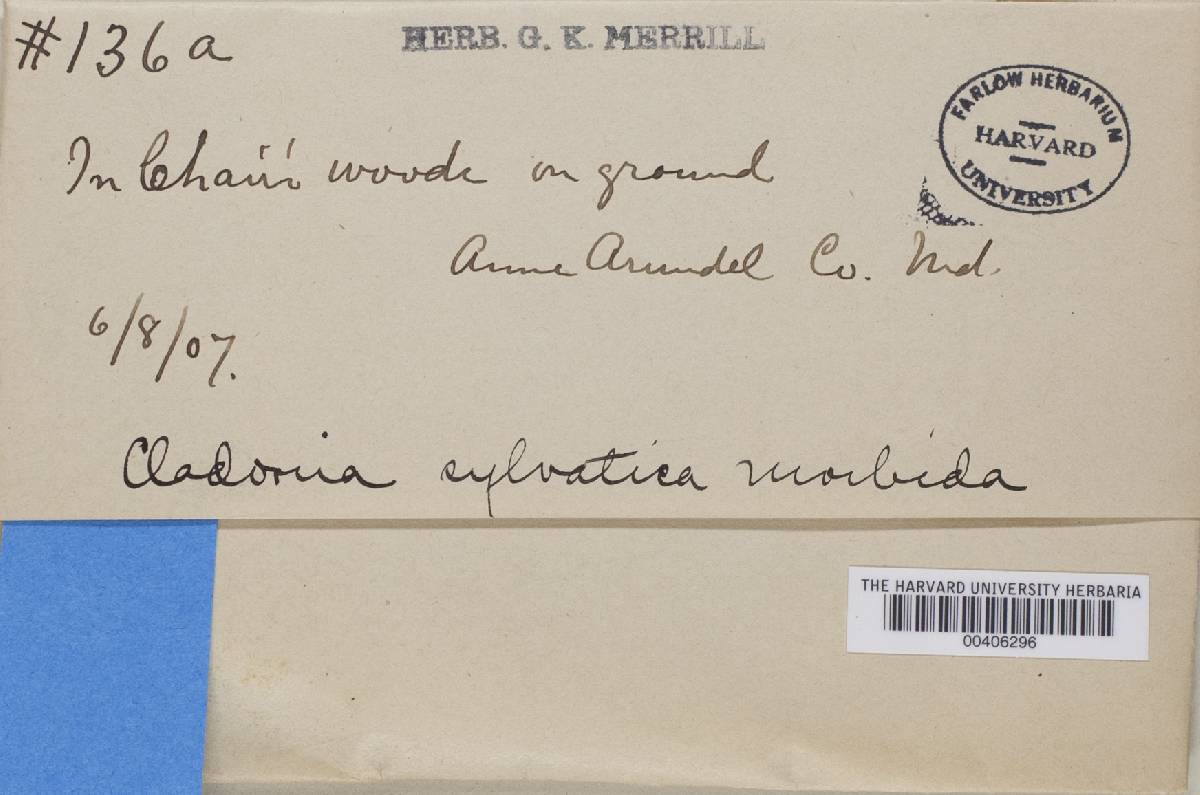 #136a
HERB. G. K. MERRILL
FARLOW HERBARIUM
HARVARD
UNIVERSITY
In woods on ground
Anne Arundel Co. Md.
6/8/07.
Cladonia sylvatica morbida
THE HARVARD UNIVERSITY HERBARIA
00406296